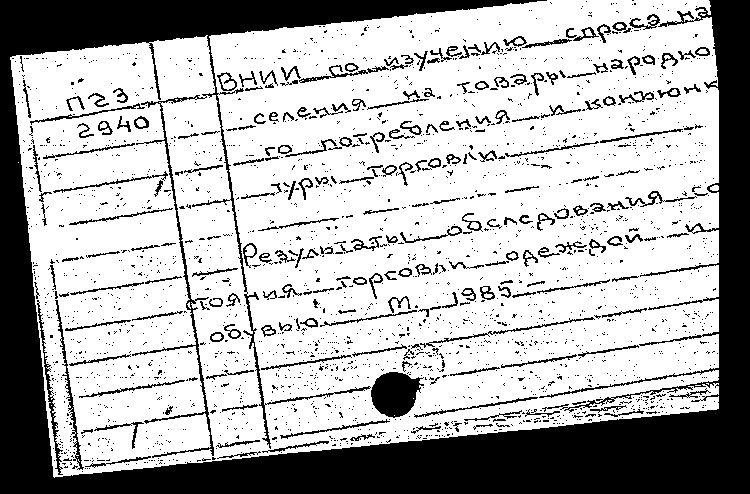 П23
2940
ВНИИ по изучению спроса на
селения на товары народно
го потребления и конъюнк
туры торговли.
Результаты обследования со
стояния торговли одеждой и
обувью. – М., 1985. –